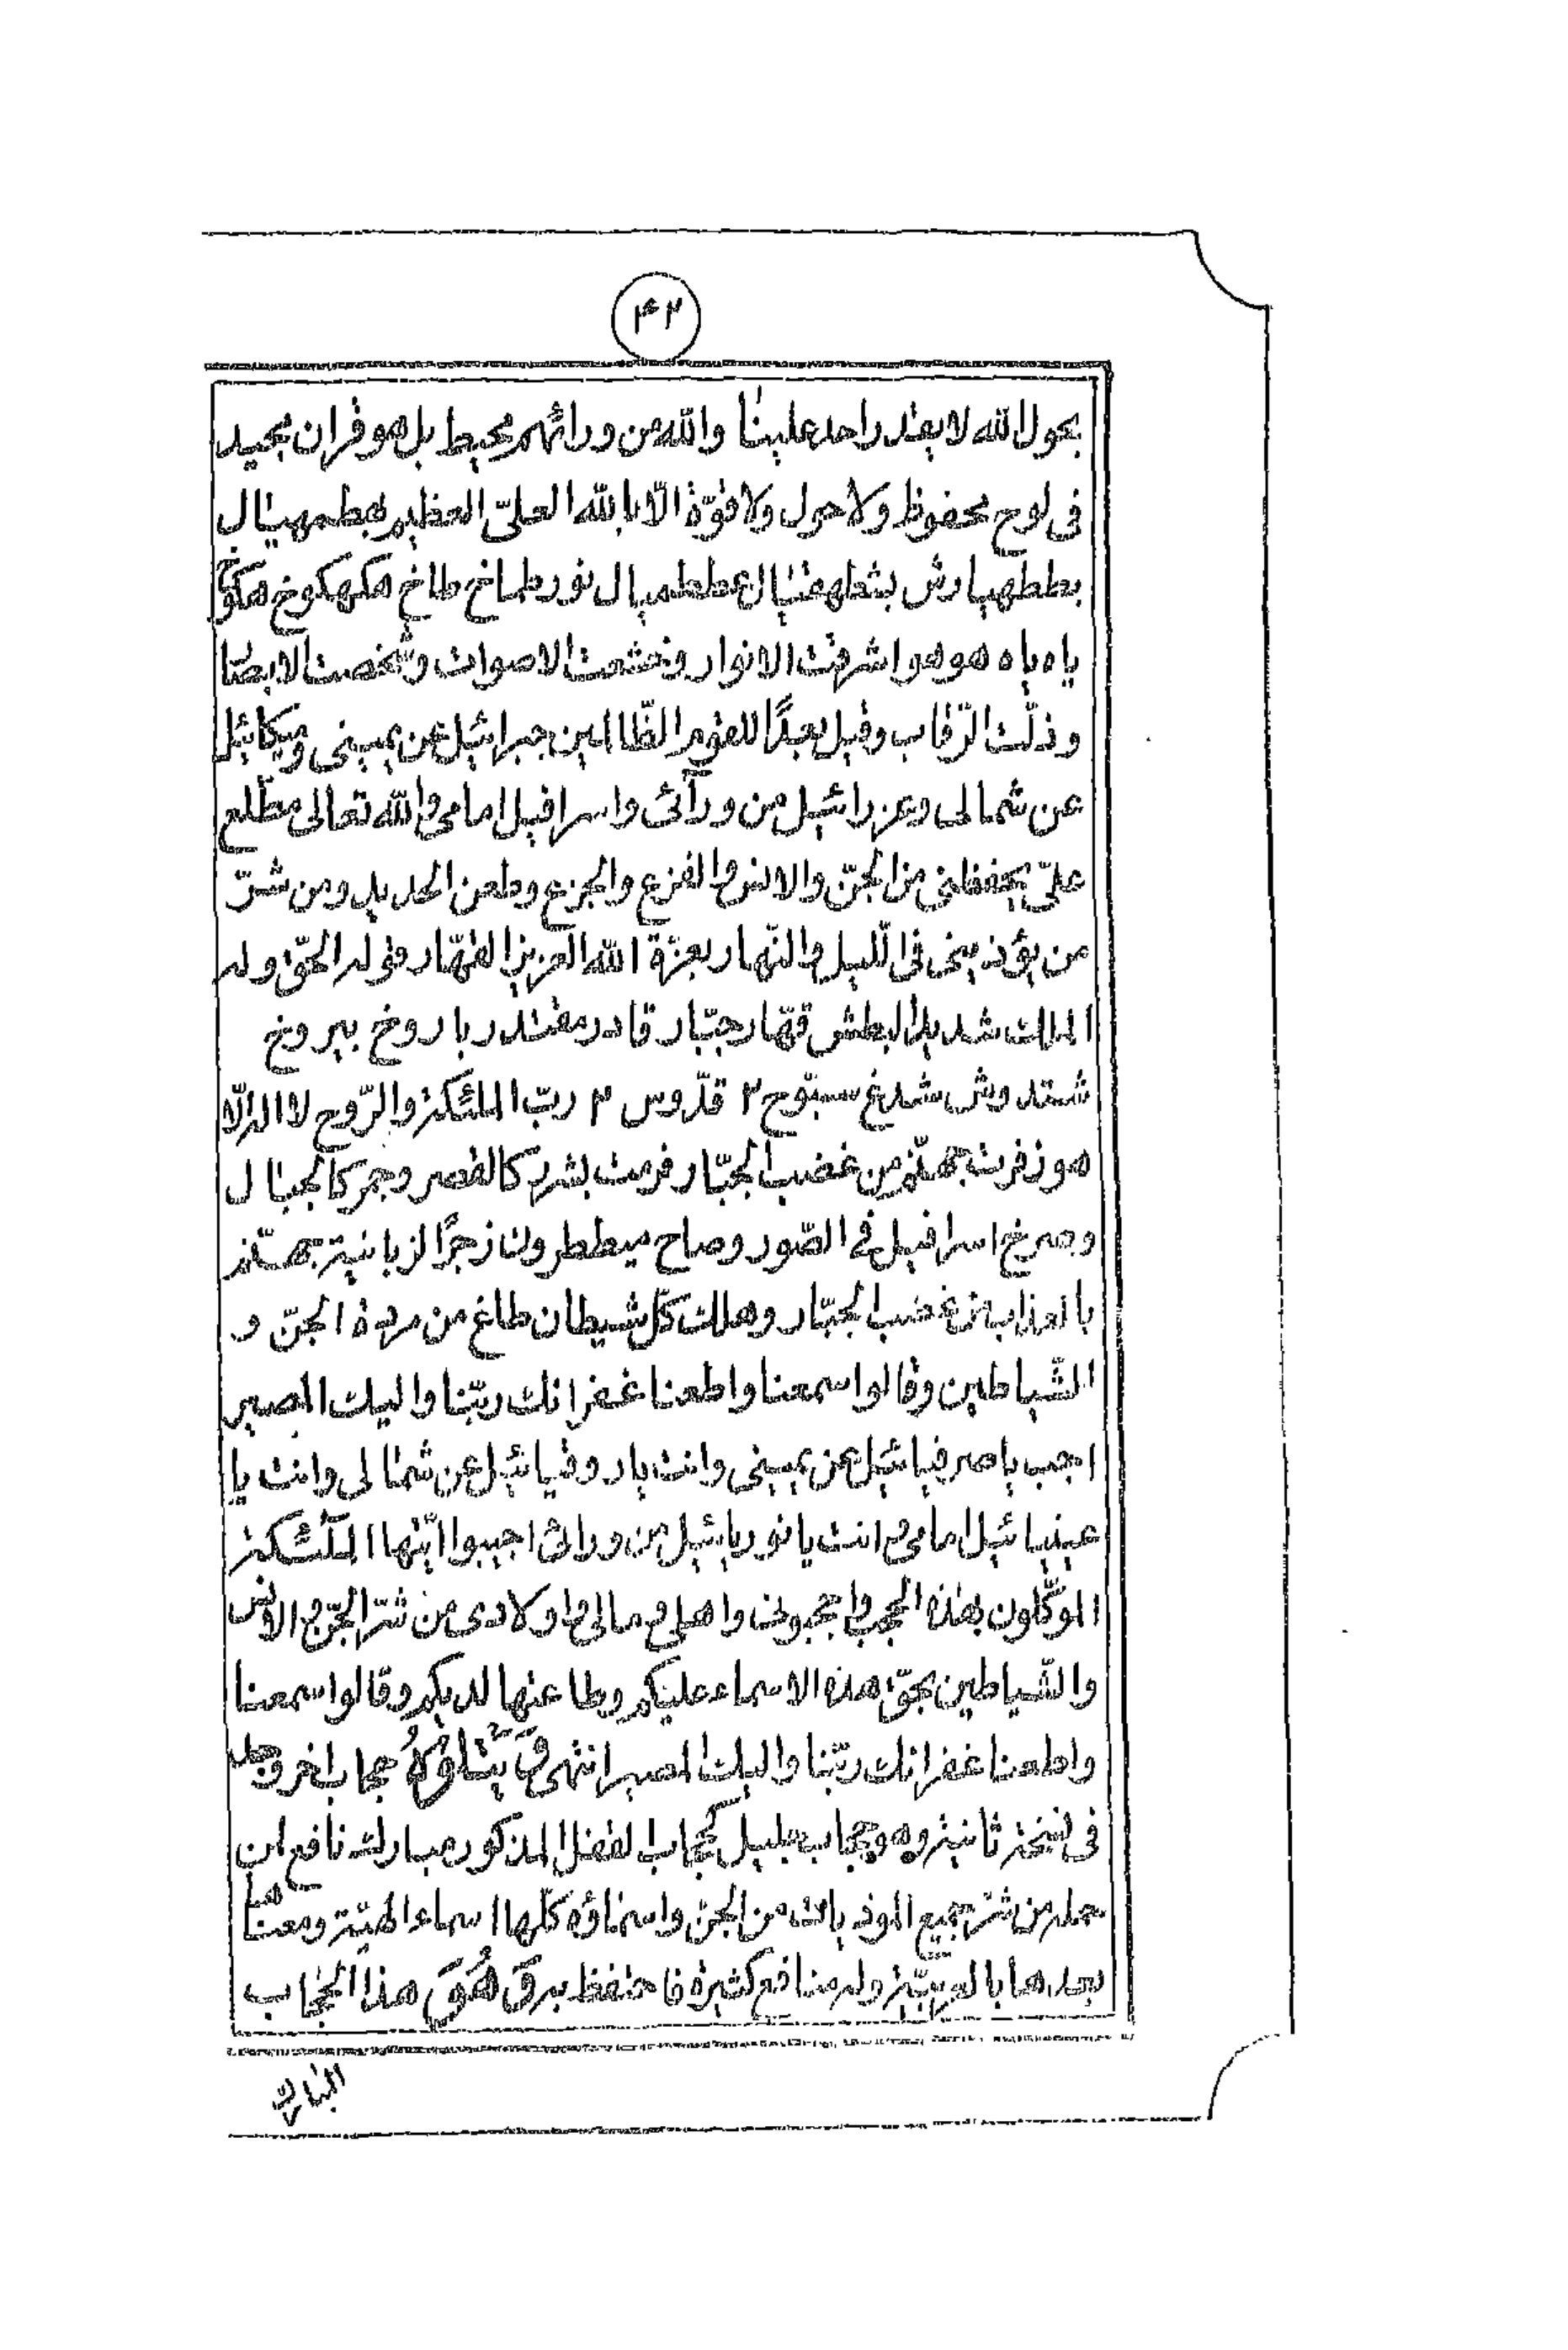 ۴۲
بحول الله لا يقدر احد علينا والله من ورائهم محيط بل هو قران مجيد
فى لوح محفوظ ولا حول ولا قوّة الّا بالله العلىّ العظيم بهطمهينال
نور طماخ طاخ هكهكوخ
ياه ياه هو هو اشرقت الانوار وخشعت الاصوات وشخصت الابصا
وذلّت الرّقاب وقيل بعدًا للقوم الظّالمين جبرائيل عن يمينى وميكائيل
عن شمالى وعزرائيل من ورآئى واسرافيل امامى والله تعالى مطّلع
علىّ يحفظنى من الجنّ والانس والفزع والجزع وطعن الحديد ومن شرّ
من يؤذينى فى اللّيل والنّهار بعزّة الله العزيز القهّار قوله الحقّ وله
الملك شديد البطش قهّار جبّار قادر مقتدر باروخ بيروخ
شتدوش شدیغ سبّوح ٢ قدّوس ٢ ربّ الملئكة والرّوح لا اله الّا
هو زفرت جهنّم من غضب الجبّار فرمت بشرر كالقصر وجمر كالجبال
وصرخ اسرافيل فى الصّور وصاح ميططرون زجرًا لزبانية جهنّم
بالعذاب من غضب الجبّار وهلك كلّ شيطان طاغ من مردة الجنّ و
الشّياطين وقالوا سمعنا واطعنا غفرانك ربّنا واليك المصير
اجب يا صرفيائيل عن يمينى وانت يا روقيائيل عن شمالى وانت يا
عينيائيل امامى وانت يا نوريائيل من ورائى اجيبوا ايّتها الملئكة
الموكّلون بهذه الحجب واحجبونى واهلى ومالى واولادى من شرّ الجنّ والانس
والشّياطين بحقّ هذه الاسماء عليكم وطاعتها لديكم وقالوا سمعنا
واطعنا غفرانك ربّنا واليك المصير انتهى حجاب اخر وجد
فى نسخة ثانية وهو حجاب جليل كحجاب القفل المذكور مبارك نافع لمن
حمله من شرّ جميع الموذيات من الجنّ واسماؤه كلّها اسماء الهيّة ومعناها
بعدها بالعربيّة وله منافع كثيرة فاحتفظ به هذا الحجاب
المبارك